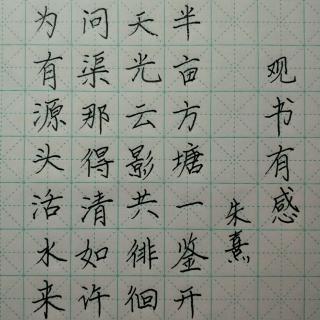 观书有感
朱熹
半亩方塘一鉴开
天光云影共徘徊
问渠那得清如许
为有源头活水来